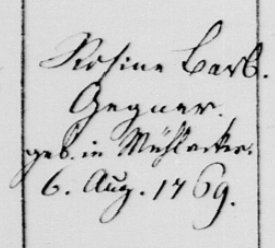 Rosine Barb.
Gegner.
geb. in Mühlacker.
6. Aug. 1769.